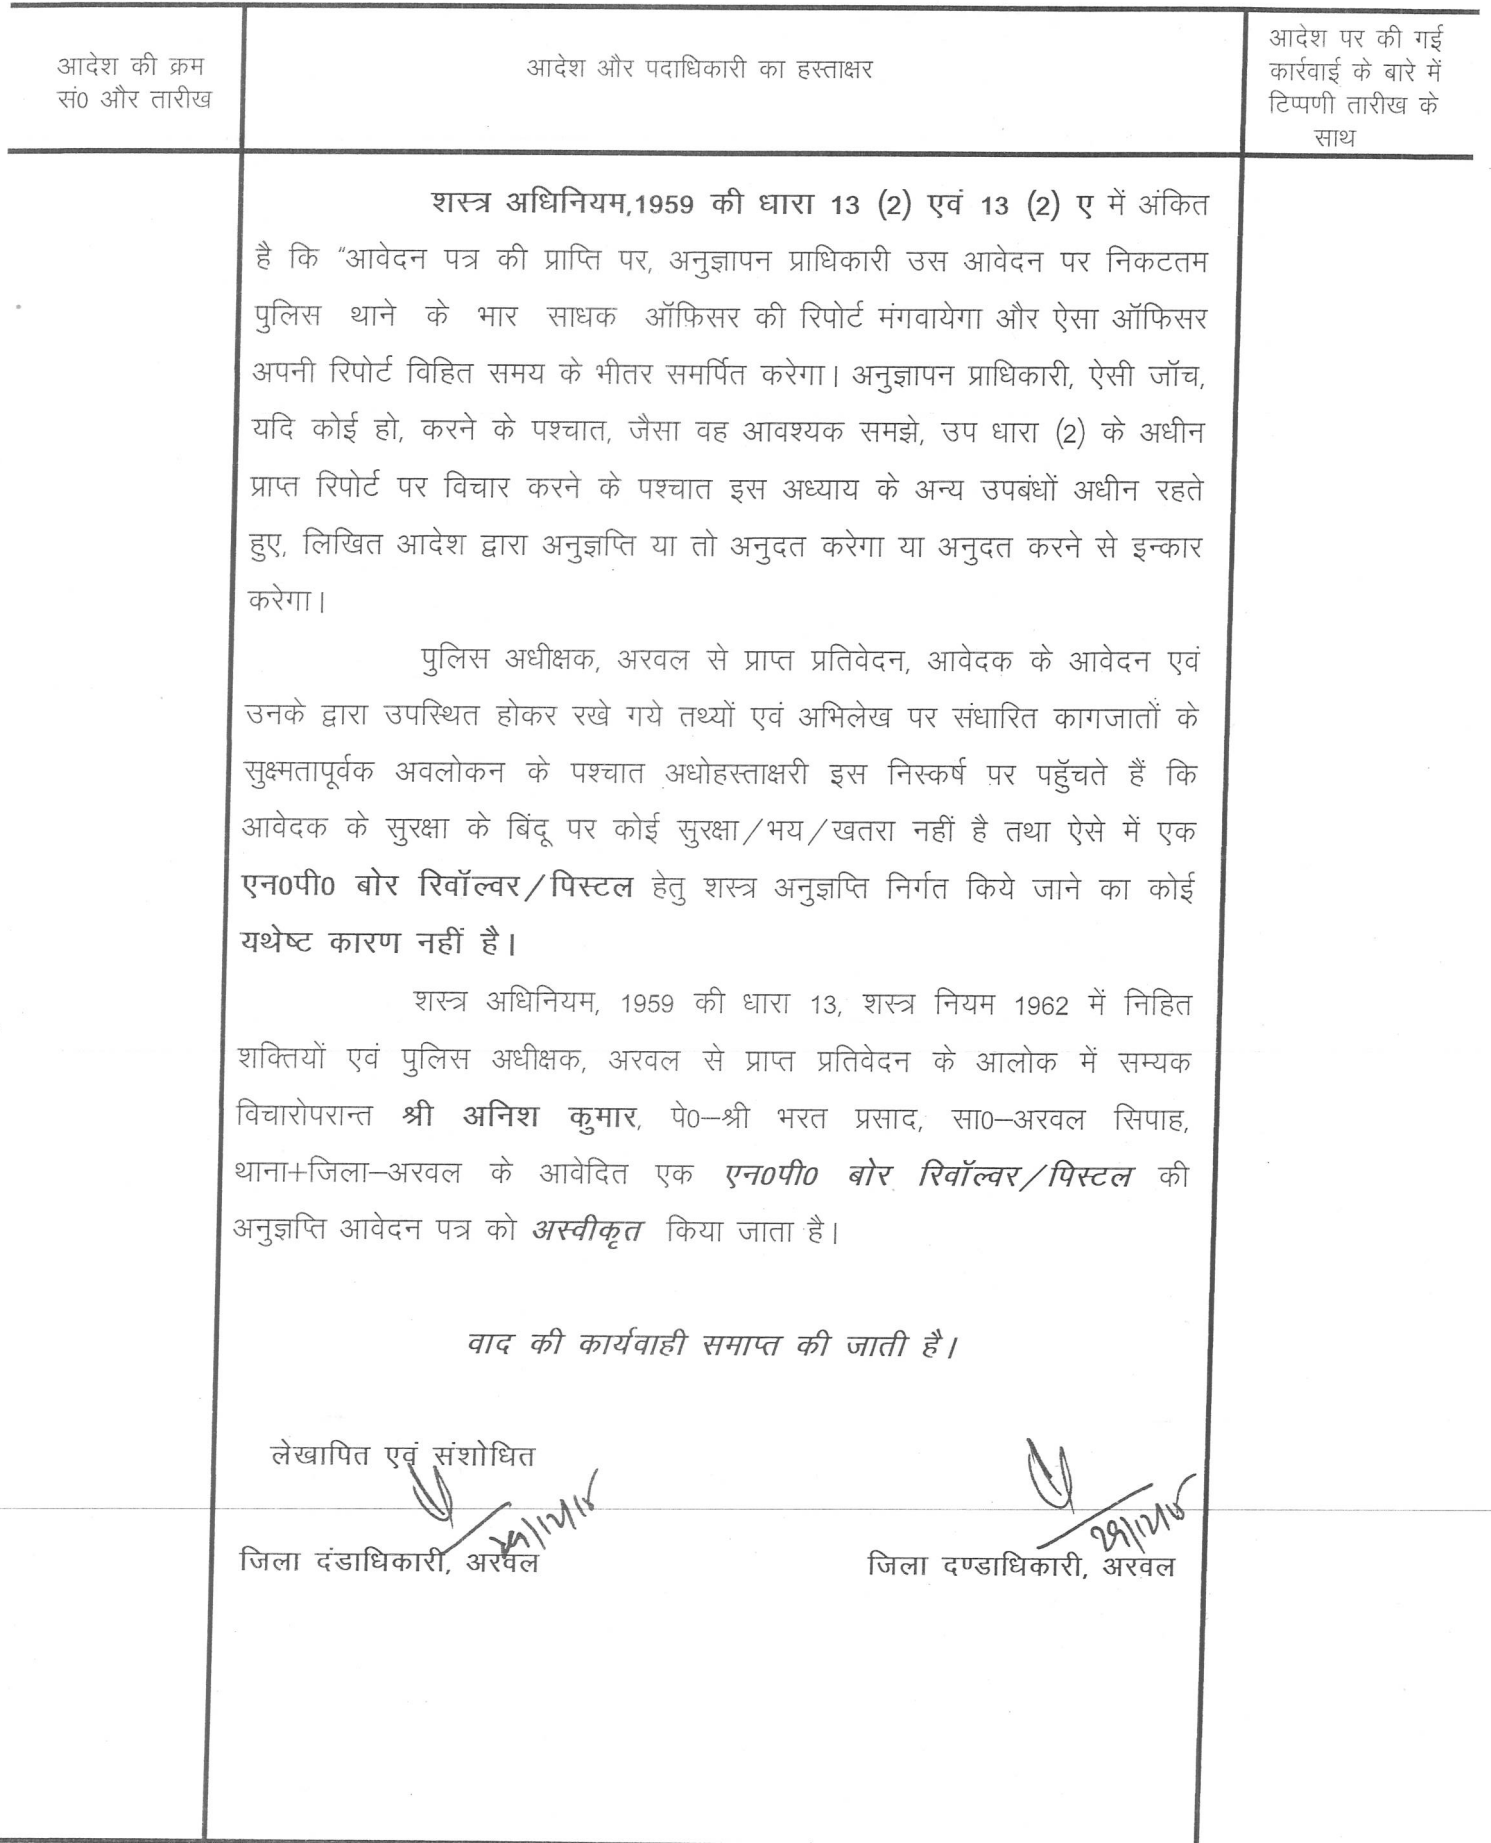 आदेश की क्रम
सं0 और तारीख
आदेश और पदाधिकारी का हस्ताक्षर
आदेश पर की गई
कार्रवाई के बारे में
टिप्पणी तारीख के
साथ
शस्त्र अधिनियम,1959 की धारा 13 (2) एवं 13 (2) ए में अंकित
है कि "आवेदन पत्र की प्राप्ति पर, अनुज्ञापन प्राधिकारी उस आवेदन पर निकटतम
पुलिस थाने के भार साधक ऑफिसर की रिपोर्ट मंगवायेगा और ऐसा ऑफिसर
अपनी रिपोर्ट विहित समय के भीतर समर्पित करेगा। अनुज्ञापन प्राधिकारी, ऐसी जॉच,
यदि कोई हो, करने के पश्चात, जैसा वह आवश्यक समझे, उप धारा (2) के अधीन
प्राप्त रिपोर्ट पर विचार करने के पश्चात इस अध्याय के अन्य उपबंधों अधीन रहते
हुए, लिखित आदेश द्वारा अनुज्ञप्ति या तो अनुदत करेगा या अनुदत करने से इन्कार
करेगा।
पुलिस अधीक्षक, अरवल से प्राप्त प्रतिवेदन, आवेदक के आवेदन एवं
उनके द्वारा उपस्थित होकर रखे गये तथ्यों एवं अभिलेख पर संधारित कागजातों के
सुक्ष्मतापूर्वक अवलोकन के पश्चात अधोहस्ताक्षरी इस निस्कर्ष पर पहुँचते हैं कि
आवेदक के सुरक्षा के बिंदू पर कोई सुरक्षा/भय/खतरा नहीं है तथा ऐसे में एक
एन0पी0 बोर रिवॉल्वर/पिस्टल हेतु शस्त्र अनुज्ञप्ति निर्गत किये जाने का कोई
यथेष्ट कारण नहीं है।
शस्त्र अधिनियम, 1959 की धारा 13, शस्त्र नियम 1962 में निहित
शक्तियों एवं पुलिस अधीक्षक, अरवल से प्राप्त प्रतिवेदन के आलोक में सम्यक
विचारोपरान्त श्री अनिश कुमार, पे0–श्री भरत प्रसाद, सा0–अरवल सिपाह,
थाना+जिला–अरवल के आवेदित एक एन0पी0 बोर रिवॉल्वर/पिस्टल की
अनुज्ञप्ति आवेदन पत्र को अस्वीकृत किया जाता है।
वाद की कार्यवाही समाप्त की जाती है।
लेखापित एवं संशोधित
जिला दंडाधिकारी, अरवल
जिला दण्डाधिकारी, अरवल